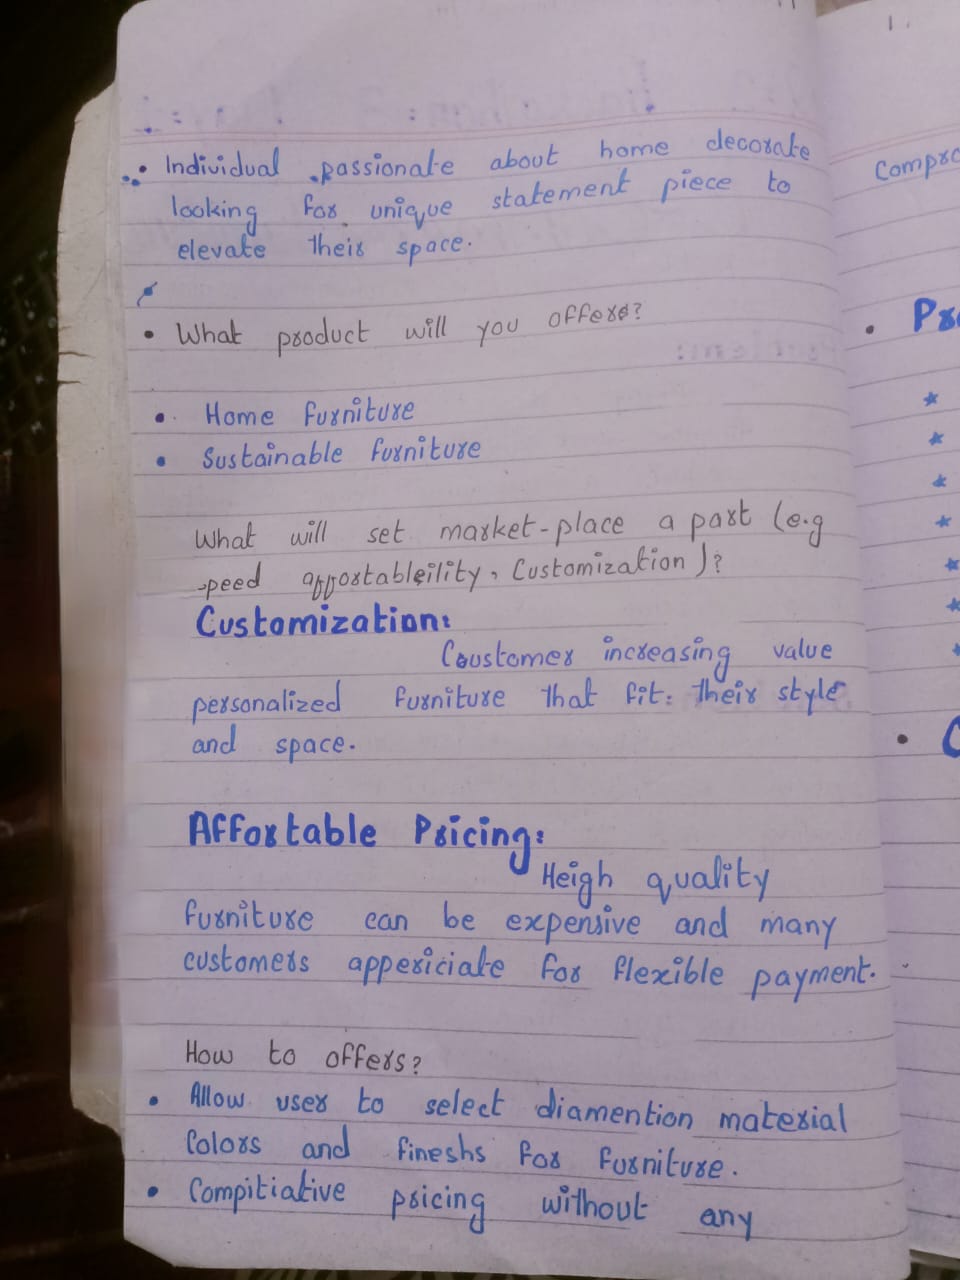 • Individual passionate about home decorate
looking for unique statement piece to
elevate their space.
• What product will you offers?
• Home furniture
• Sustainable furniture
What will set market-place a part (e.g
speed affortableility, Customization)?
Customization:
Coustomer increasing value
personalized furniture that fit: their style
and space.
Affortable Pricing:
Heigh quality
furniture can be expensive and many
customers appericiate for flexible payment.
How to offers?
• Allow user to select diamention material
Colors and fineshs for furniture.
• Compitiative pricing without any